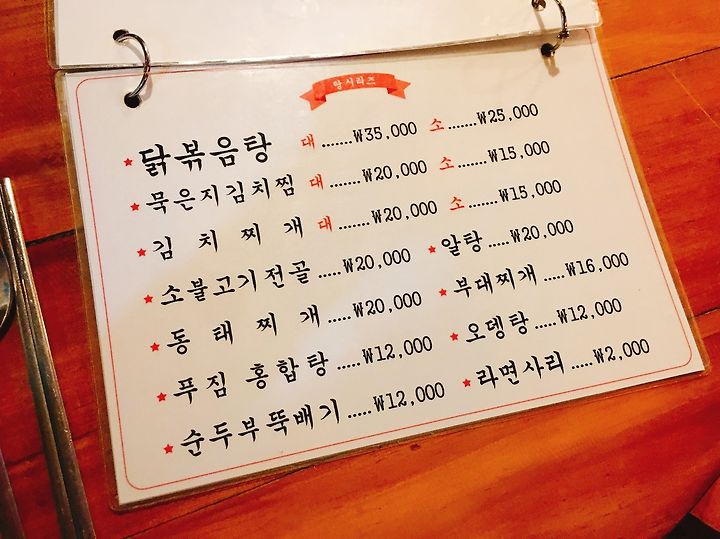 탕시리즈
닭볶음탕 대.......₩35,000 소.......₩25,000
묵은지김치찜 대.......₩20,000 소.......₩15,000
김치찌개 대.......₩20,000 소.......₩15,000
소불고기전골.....₩20,000 알탕.....₩20,000
동태찌개.....₩20,000 부대찌개.....₩16,000
푸짐 홍합탕.....₩12,000 오뎅탕.....₩12,000
순두부뚝배기.....₩12,000 라면사리.....₩2,000